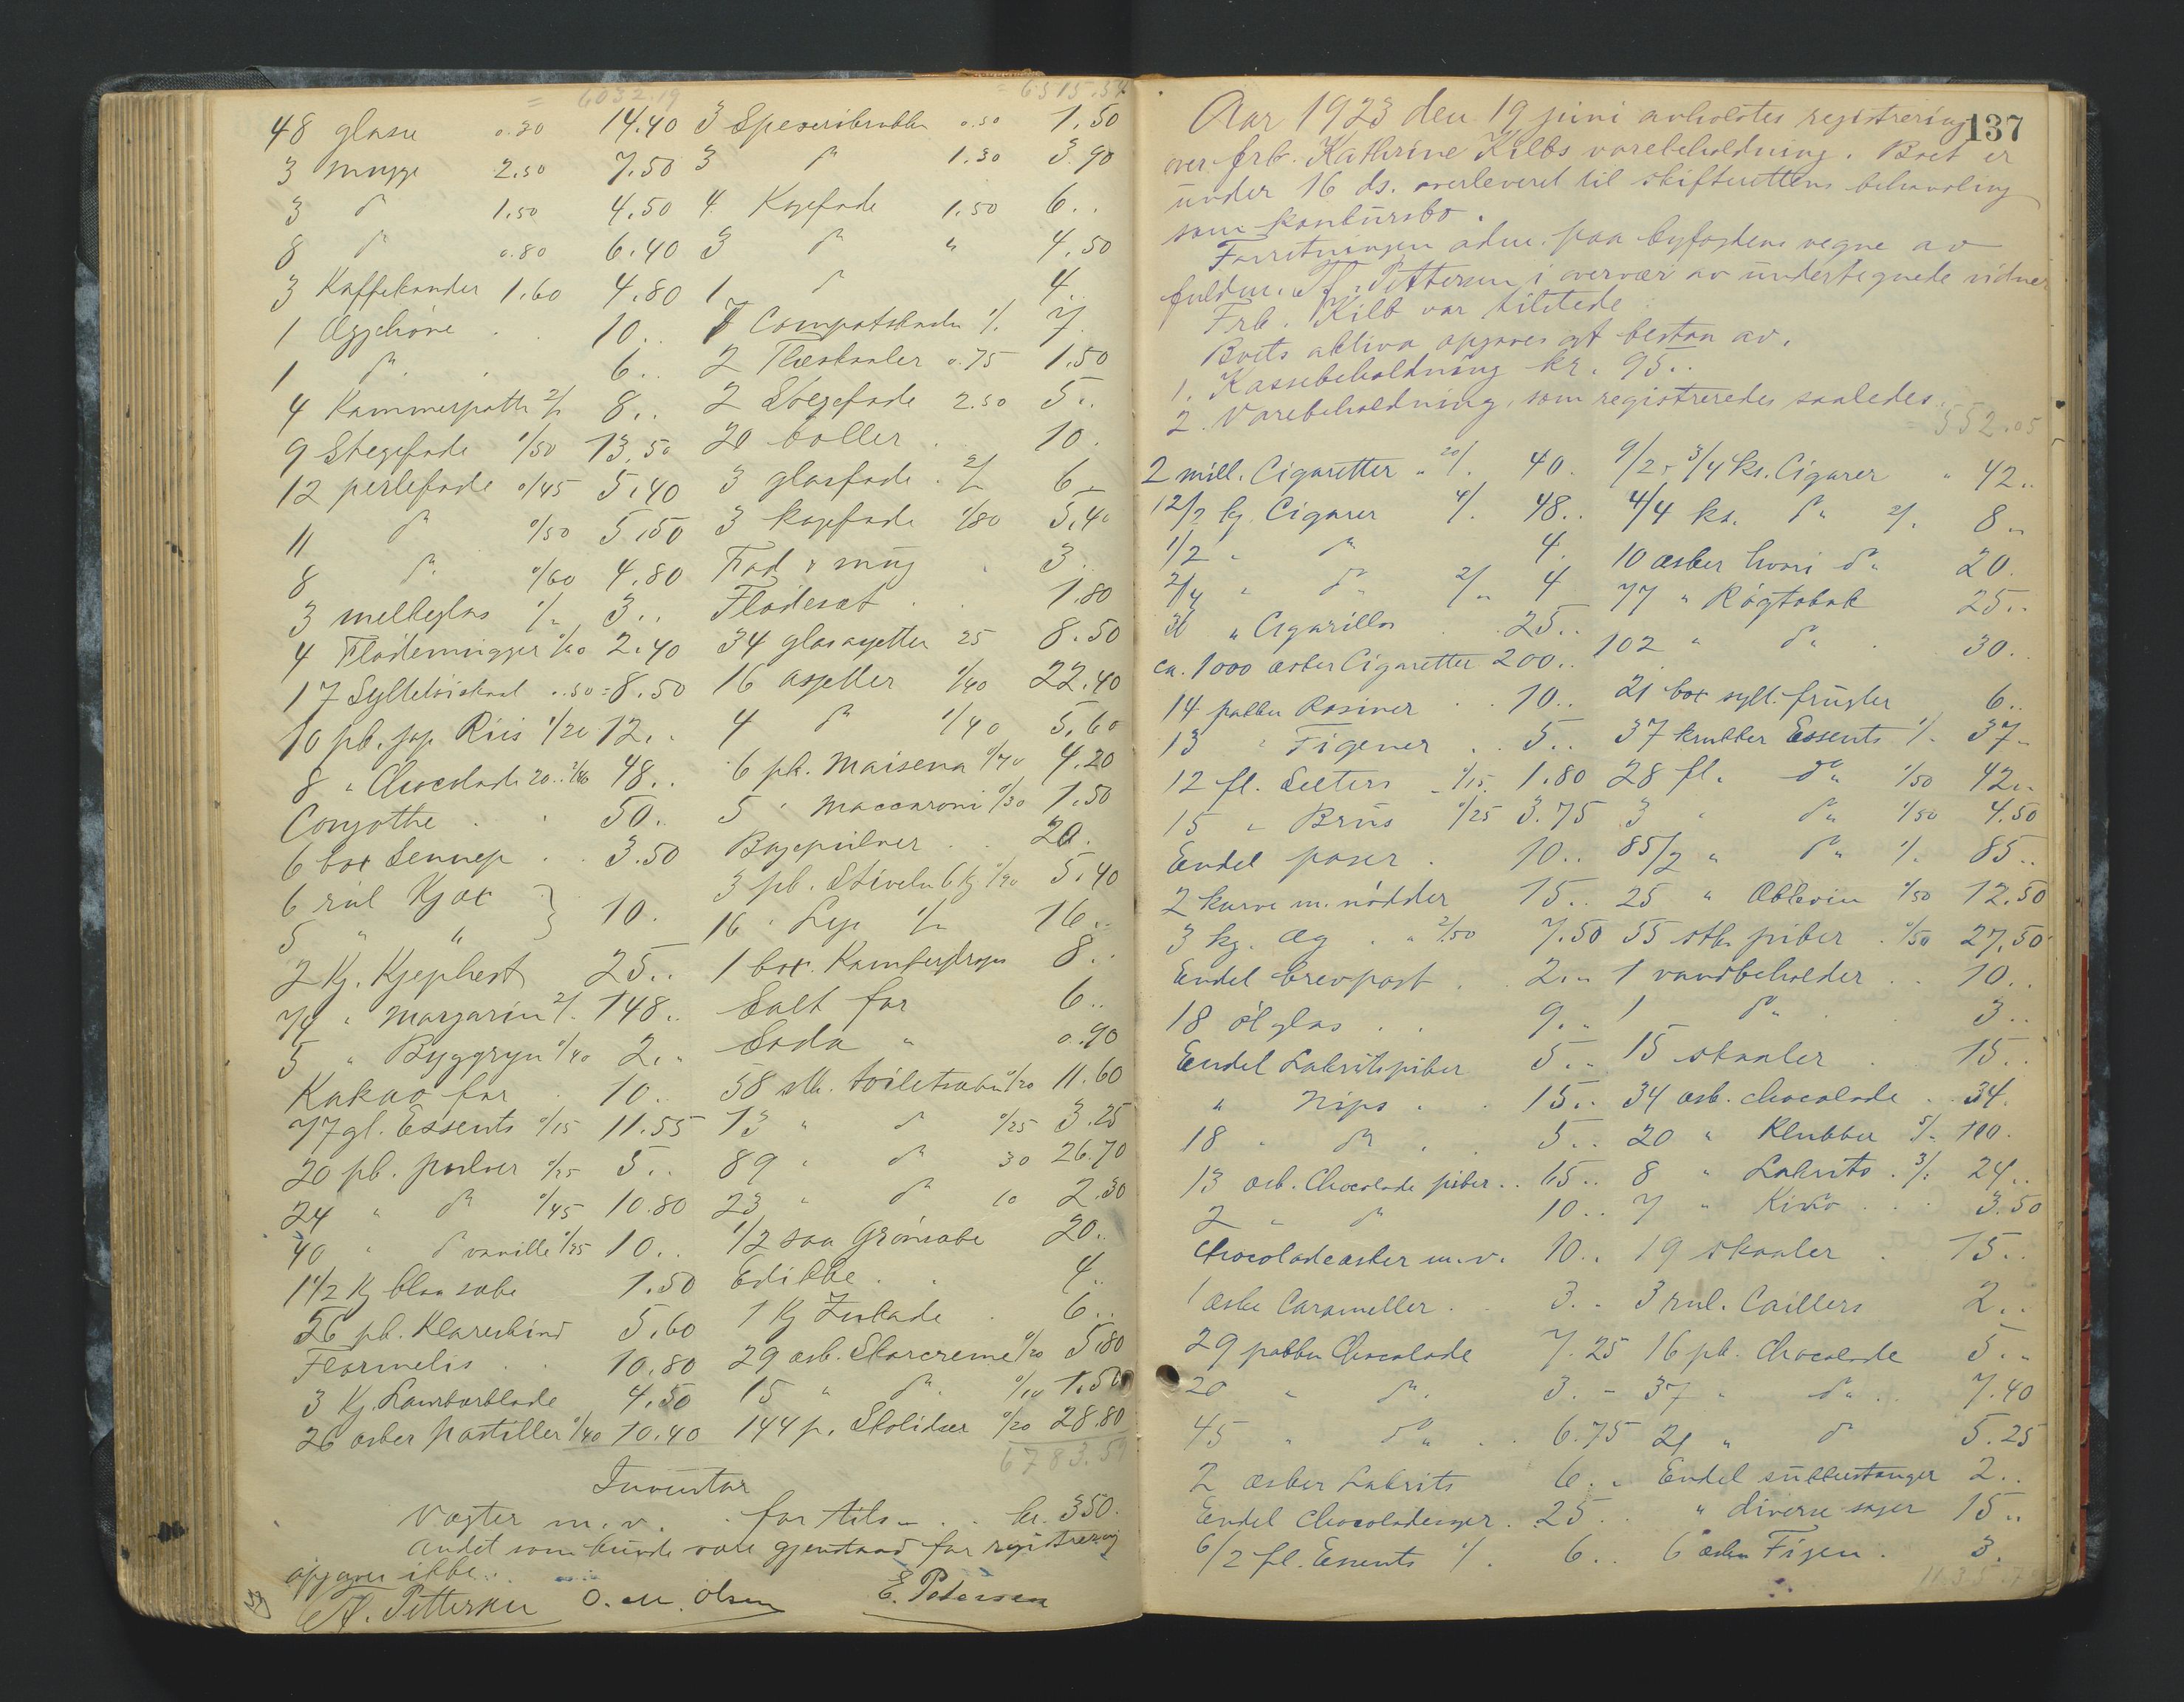 = 6032.19
48 glass 0.30 14.40
3 mugge 2.50 7.50
3 do 1.50 4.50
8 do 0.80 6.40
3 Kaffekander 1.60 4.80
1 10..
1 do 6..
4 Kammerpotte 2/- 8..
9 Stegefade 1/50 13.50
12 perlefade 0/45 5.40
11 do 0/50 5.50
8 do 0/60 4.80
3 melkeglas 1/- 3..
4 Flødemugger 0/60 2.40
17 Syltetøiskaal 0.50 = 8.50
10 pk. jap. Riis 1/20 12..
8 " Chocolade 48..
50..
6 box Sennep 3.50
6 rul Kjæx } 10.
5 " "
2 Kg. 25..
74 " Margarin 2/- 148..
5 " Byggryn 0/40 2..
Kakao for 10.
77 gl. Essents 0/15 11.55
20 pk. pulver 0/25 5..
24 " do 0/45 10.80
40 " do vanille 0/25 10..
1 1/2 Kg blaa sæbe 1.50
26 pk. Klareskind 5.60
10.80
3 Kg. Laurbærblade 4.50
26 æsker pastiller 0/40 10.40
= 6515.37
3 0.50 1.50
3 do 1.30 3.90
4 Kagefade 1.50 6..
3 do " 4.50
1 do 4..
7 Compotskaaler 1/. 7.
2 0.75 1.50
2 Stegefade 2.50 5..
20 boller 10.
3 glasfade 2/- 6..
3 kagefade 1/80 5.40
Fad & mug 3..
Flødesæt 1.80
34 glasasjetter 25 8.50
16 asjetter 1/40 22.40
4 do 1/40 5.60
6 pk. Maisena 0/70 4.20
5 " Maccaroni 0/30 1.50
Bagepulver 20.
3 pk. Stivelse 6 Kg 0/90 5.40
16 " 1/- 16..
1 box. Kamferdrops 8..
Salt for 6..
Soda " 0.90
58 stk. toiletsæbe 0/20 11.60
13 " do 0/25 3.25
89 " do 30 26.70
23 " do 10 2.30
1/2 saa Grønsæbe 20..
Edikke 4..
1 Kg Sukade 6..
29 æsk. Skocreme 0/20 5.80
15 " do 0/10 1.50
144 p. Skolidser 0/20 28.80
6783.59
Inventar
Vægter m.v. for tils. kr. 350.
Andet som kunde være gjenstand for registrering
opgaves ikke.
Pettersen O. M. Olsen E. Petersen
137
Aar 1923 den 19 juni avholdtes registrering
over frk. Kathrine Kilbs varebeholdning. Boet er
under 16 ds. overleveret til skifterettens behandling
som konkursbo.
Forretningen adm. paa byfogdens vegne av
fuldm. Pettersen i overvær av undertegnede vidner
Frk. Kilb var tilstede
Boets aktiva opgaves at bestaa av.
1. Kassebeholdning kr. 95..
2. Varebeholdning, som registreredes saaledes.
= 552.05
2 mill. Cigaretter " 20/. 40.
12/2 ks. Cigarer 4/. 48..
1/2 " do 4.
2/4 " do 2/- 4
36 " Cigarillos 25..
ca. 1000 æsker Cigaretter 200..
14 pakker Rosiner 10..
13 " Figener 5..
12 fl. Selters 0/15 1.80
15 " Brus 0/25 3.75
Endel poser 10..
2 kurve m. nødder 15..
3 kg. Æg 2/50 7.50
Endel brevpost 2..
18 ølglas 9..
Endel Lakritspiber 5..
" Nips 15..
18 " do 5..
13 æsk. Chocolade piber 15..
2 " do 10..
Chocoladeæsker m.v. 10..
1 æske Carameller 3..
29 pakker Chocolade 7.25
20 " do 3.-
45 " do 6.75
2 æsker Lakrits 6..
Endel Chocolade 25..
6/2 fl. Essents 1/. 6..
9/2 - 3/4 ks. Cigarer " 42..
4/4 ks. do 2/. 8..
10 æsker hvori do 20.
77 " Røgtobak 25..
102 " do 30..
21 box sylt. frugter 6..
37 krukker Essents 1/- 37..
28 fl. do 1/50 42..
3 " do 1/50 4.50
85/2 " do 1/. 85..
25 " Æblevin 0/50 12.50
55 stk. piber 0/50 27.50
1 vandbeholder 10..
1 do 3..
15 skaaler 15..
34 æsk. chocolade 34.
20 " Klubber 5/- 100.
8 " Lakrits 3/. 24..
7 " 3.50
19 skaaler 15..
3 rul. Caillers 2..
16 pk. Chocolade 5..
37 " do 7.40
21 " do 5.25
Endel sukkerstanger 2..
" diverse sager 15..
6 æsker Figen 3.